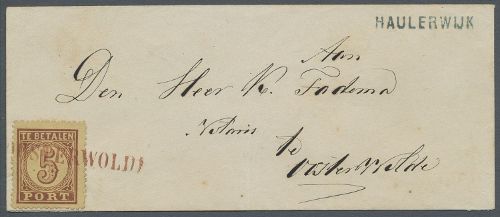 HAULERWIJK
Aan
Den Heer K. Fadema
Notaris
te
Oosterwolde
TE BETALEN
5
PORT
OSTERWOLDE